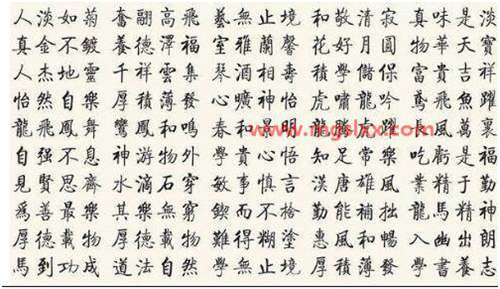 人淡如菊 奮翮高飛 藝無止境 和敬清寂 真味是淡
真金不鍍 養德澤福 室雅蘭馨 花好月圓 物華天寶
人杰地靈 千祥雲集 琴 相壽 積學儲 富貴吉祥
怡然自樂 厚積薄發 曠神怡 虎嘯 吟 鳶飛魚躍
龍飛鳳舞 鸞鳳和鳴 春和 明 龍騰虎躍 風萬裏
自強不息 神游物外 學貴心悟 知足常樂 吃虧是福
見賢思齊 水滴石穿 敏事慎言 漢唐雄風 業精于勤
為善最樂 其樂無窮 鍥而不捨 勤能補拙 龍馬精神
厚德載物 厚德載物 難得糊塗 惠風和暢 入幽出朗
馬到功成 道法自然 學無止境 厚積薄發 學書養志